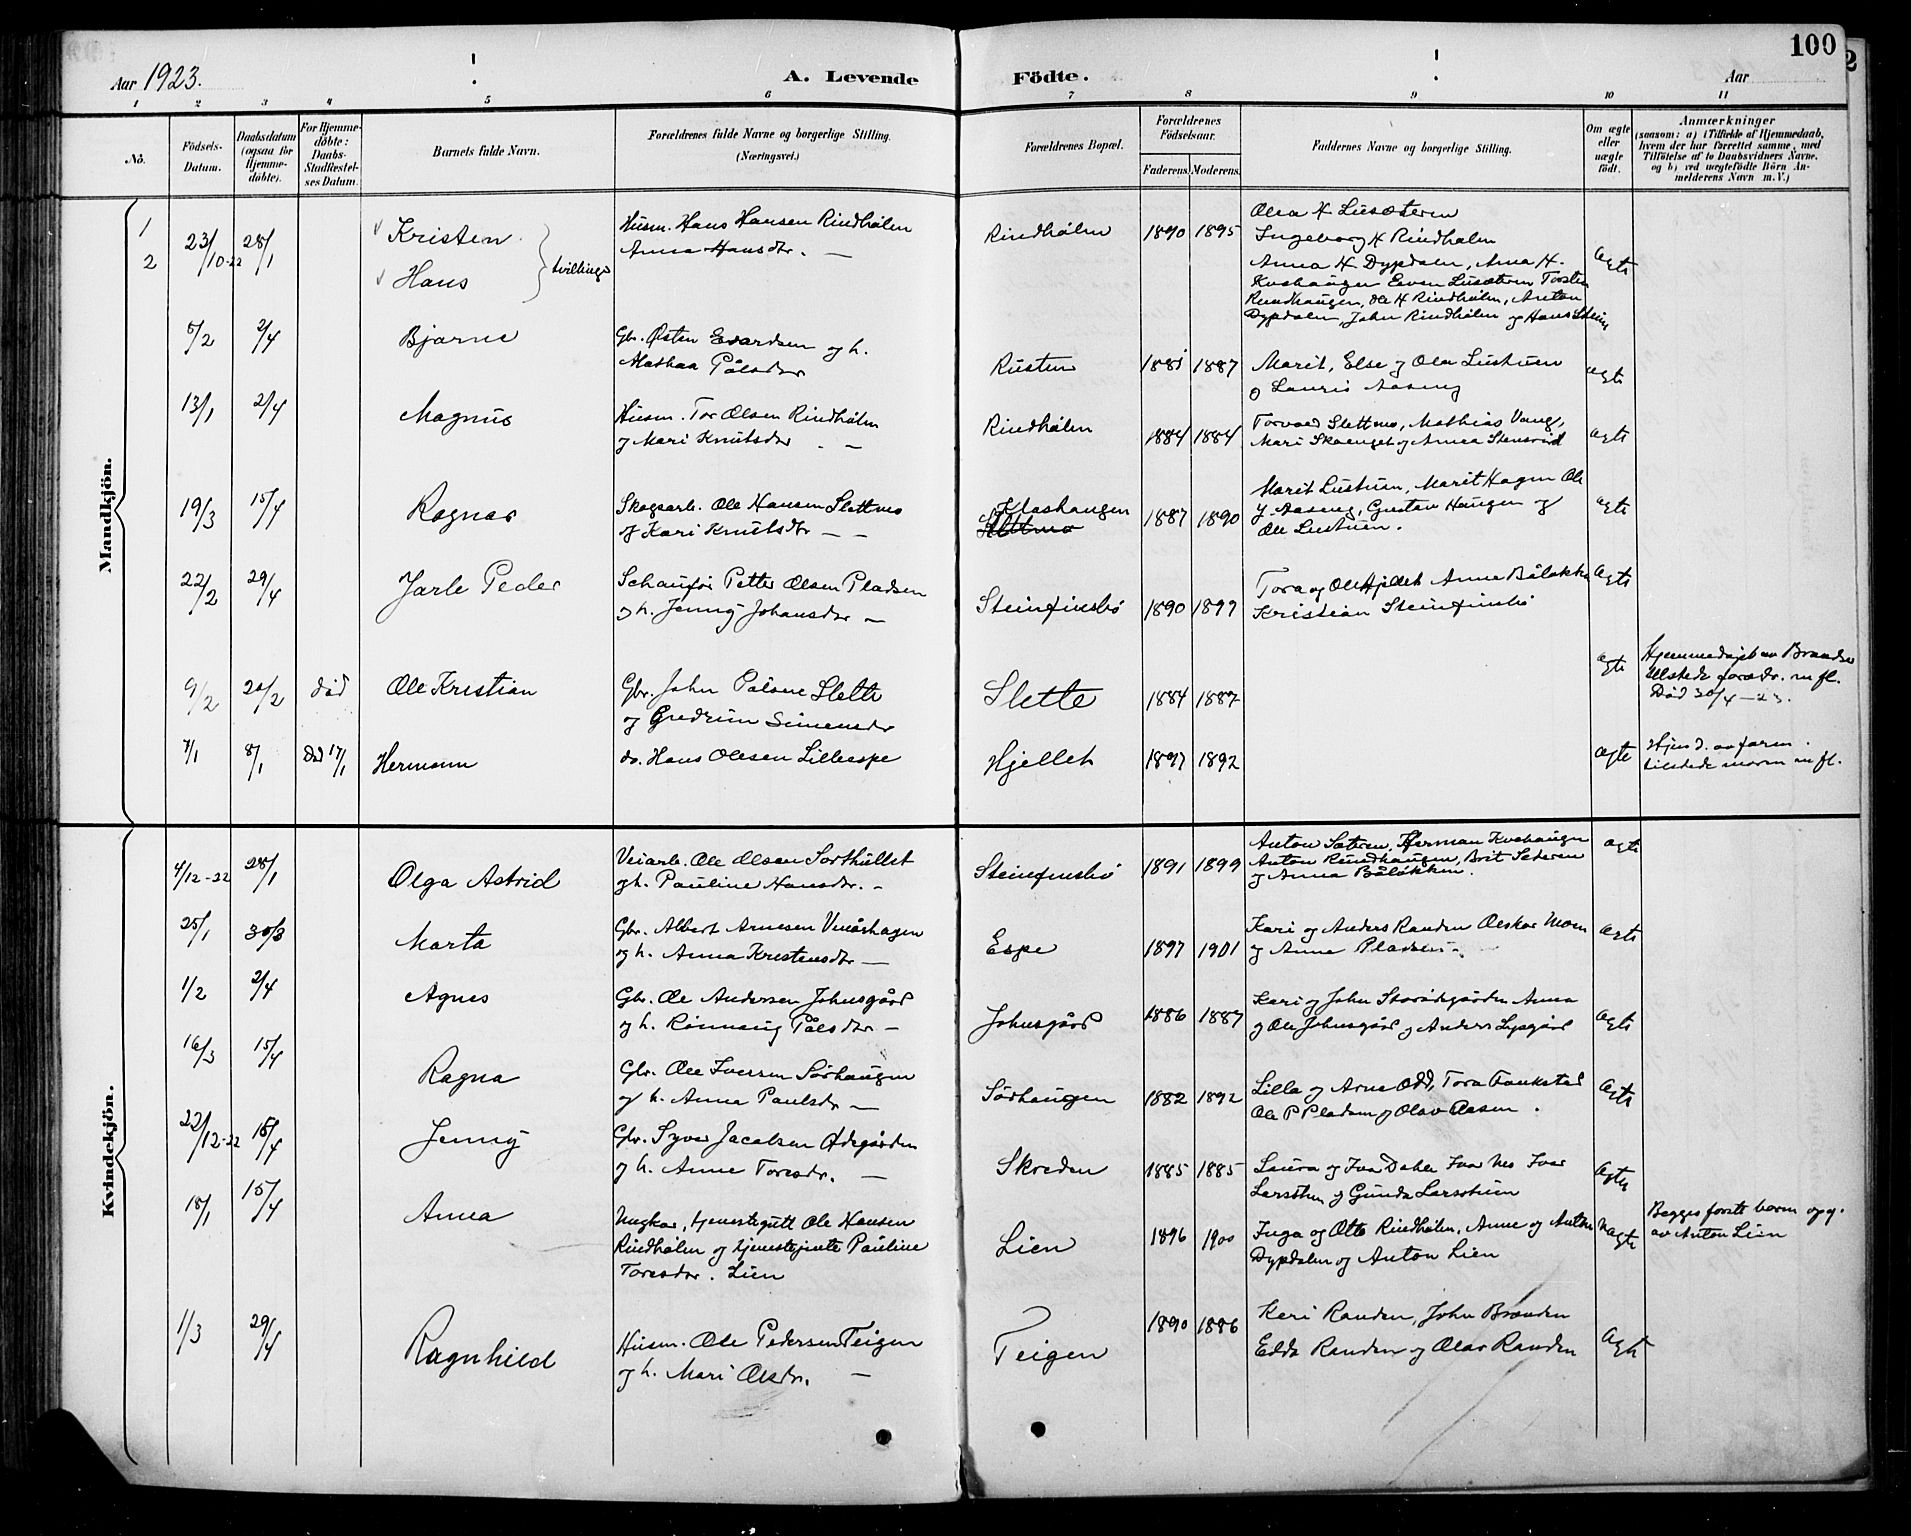 100
Aar 1923. A. Levende Födte. Aar
1 2 3 4 5 6 7 8 9 10 11
Nö. Födsels-Datum. Daabsdatum (ogsaa for Hjemmedöbte). For Hjemmedöbte: Daabs-Stadfæstelses Datum. Barnets fulde Navn. Forældrenes fulde Navne og borgerlige Stilling. (Næringsvei.) Forældrenes Bopæl. Forældrenes Födselsaar. Faderens. Moderens. Faddernes Navne og borgerlige Stilling. Om ægte eller uægte födt. Anmærkninger (saasom: a) i Tilfælde af Hjemmedaab, hvem der har forrettet samme, med Tilföielse af to Daabsvidners Navne, og b) ved uægtefödte Börn Anmelderens Navn m. V.)
Mandkjön.
1 23/10-22 28/1 Kristen Husm. Hans Hansen Rindhølen Rindhølen 1890 1895 Ingeborg H Rindhølen
2 Hans tvillinger Anna Hansdtr. — Anna H Dypdalen, Anna H.
Rundhaugen, Ole H Rindhølen, Anton
Dypdalen, John Rindhølen og Hans ægte
5/2 2/4 Bjarne Gbr. Østen og h.
Pålsdtr Rusten 1887 Marit, Else og Ola Lustuen
og Lauris Aaseng ægte
13/1 2/4 Magnus Husm. Tor Olsen Rindhølen Rindhølen 1884 1884 Slettmo, Mathias Vang,
og Mari Knutsdtr — Mari og Anna ægte
19/3 15/4 Ragnar Skogsarb. Ole Hansen Slettmo Klashaugen 1887 1890 Marit Lustuen, Marit Hagen Ole
og Kari Knutsdtr — — Slettmo Aaseng, Gustav Haugen og
Ole Lustuen. ægte
22/2 29/4 Jarle Peder Petter Olsen Pladsen Steinfinsbø 1890 1899 Tora og Ole Hjellet Anne Båløkken
og h. Jenny Johansdtr — Kristian Steinfinsbø ægte
9/2 20/2 død Ole Kristian Gbr. John Pålsen Slette Slette 1884 1887 ægte Hjemmedøpt av
og Gudrun Simensdtr Død 30/4-23.
7/1 8/1 Død 17/1 Hermann do. Hans Olesen Lilleespe Hjellet 1897 1892 ægte Hjemd. av faren.
tilstede moren m fl.
Kvindekjön.
4/12-22 28/1 Olga Astrid Veiarb. Ole Olsen Sorthullet Steinfinsbø 1891 1899 Anton Sæteren, Herman Kvehaugen
og h. Pauline Hansdtr. — Anton Rundhaugen, Brit Sæteren
og Anna Båløkken. ægte
25/1 30/3 Marta Gbr. Albert Arnesen Espe 1897 1901 Kari og Anders Randen Oskar Moen
og h. Anna Kristensdtr — og Anna Pladsen ægte
1/2 2/4 Agnes Gbr. Ole Andersen Johnsgård Johnsgård 1886 1887 Kari og John Anna
og h. Rønnaug Pålsdtr — og Ole Johnsgård og Anders Lysgård ægte
16/3 15/4 Ragna Gbr. Ole Iversen Sørhaugen Sørhaugen 1882 1892 Lilla og Arne Odd, Tora Faukstad
og h. Anna Paulsdtr — Ole P Pladsen og Olav Aasen. ægte
22/12-22 15/4 Jenny Gbr. Syver Jacobsen Ødegården Skreden 1885 1885 Laura og Ivar Dahle Ivar Nes Ivar
og h. Anne Toresdtr. — Larsstuen og Gunda Larsstuen ægte
18/1 15/4 Anna Ungkar, tjenestegutt Ole Hansen Lien 1896 1900 Inga og Otto Rindhølen, Anne og Anton
Rindhølen og tjenestejente Pauline Dypdalen og Anton Lien uægte Begges første barn opg.
Toresdtr. Lien av Anton Lien
1/3 29/4 Ragnhild Husm. Ole Pedersen Teigen Teigen 1890 1886 Kari Randen, John Brænden
og h. Mari Olsdtr. — Edda Randen og Olav Randen ægte